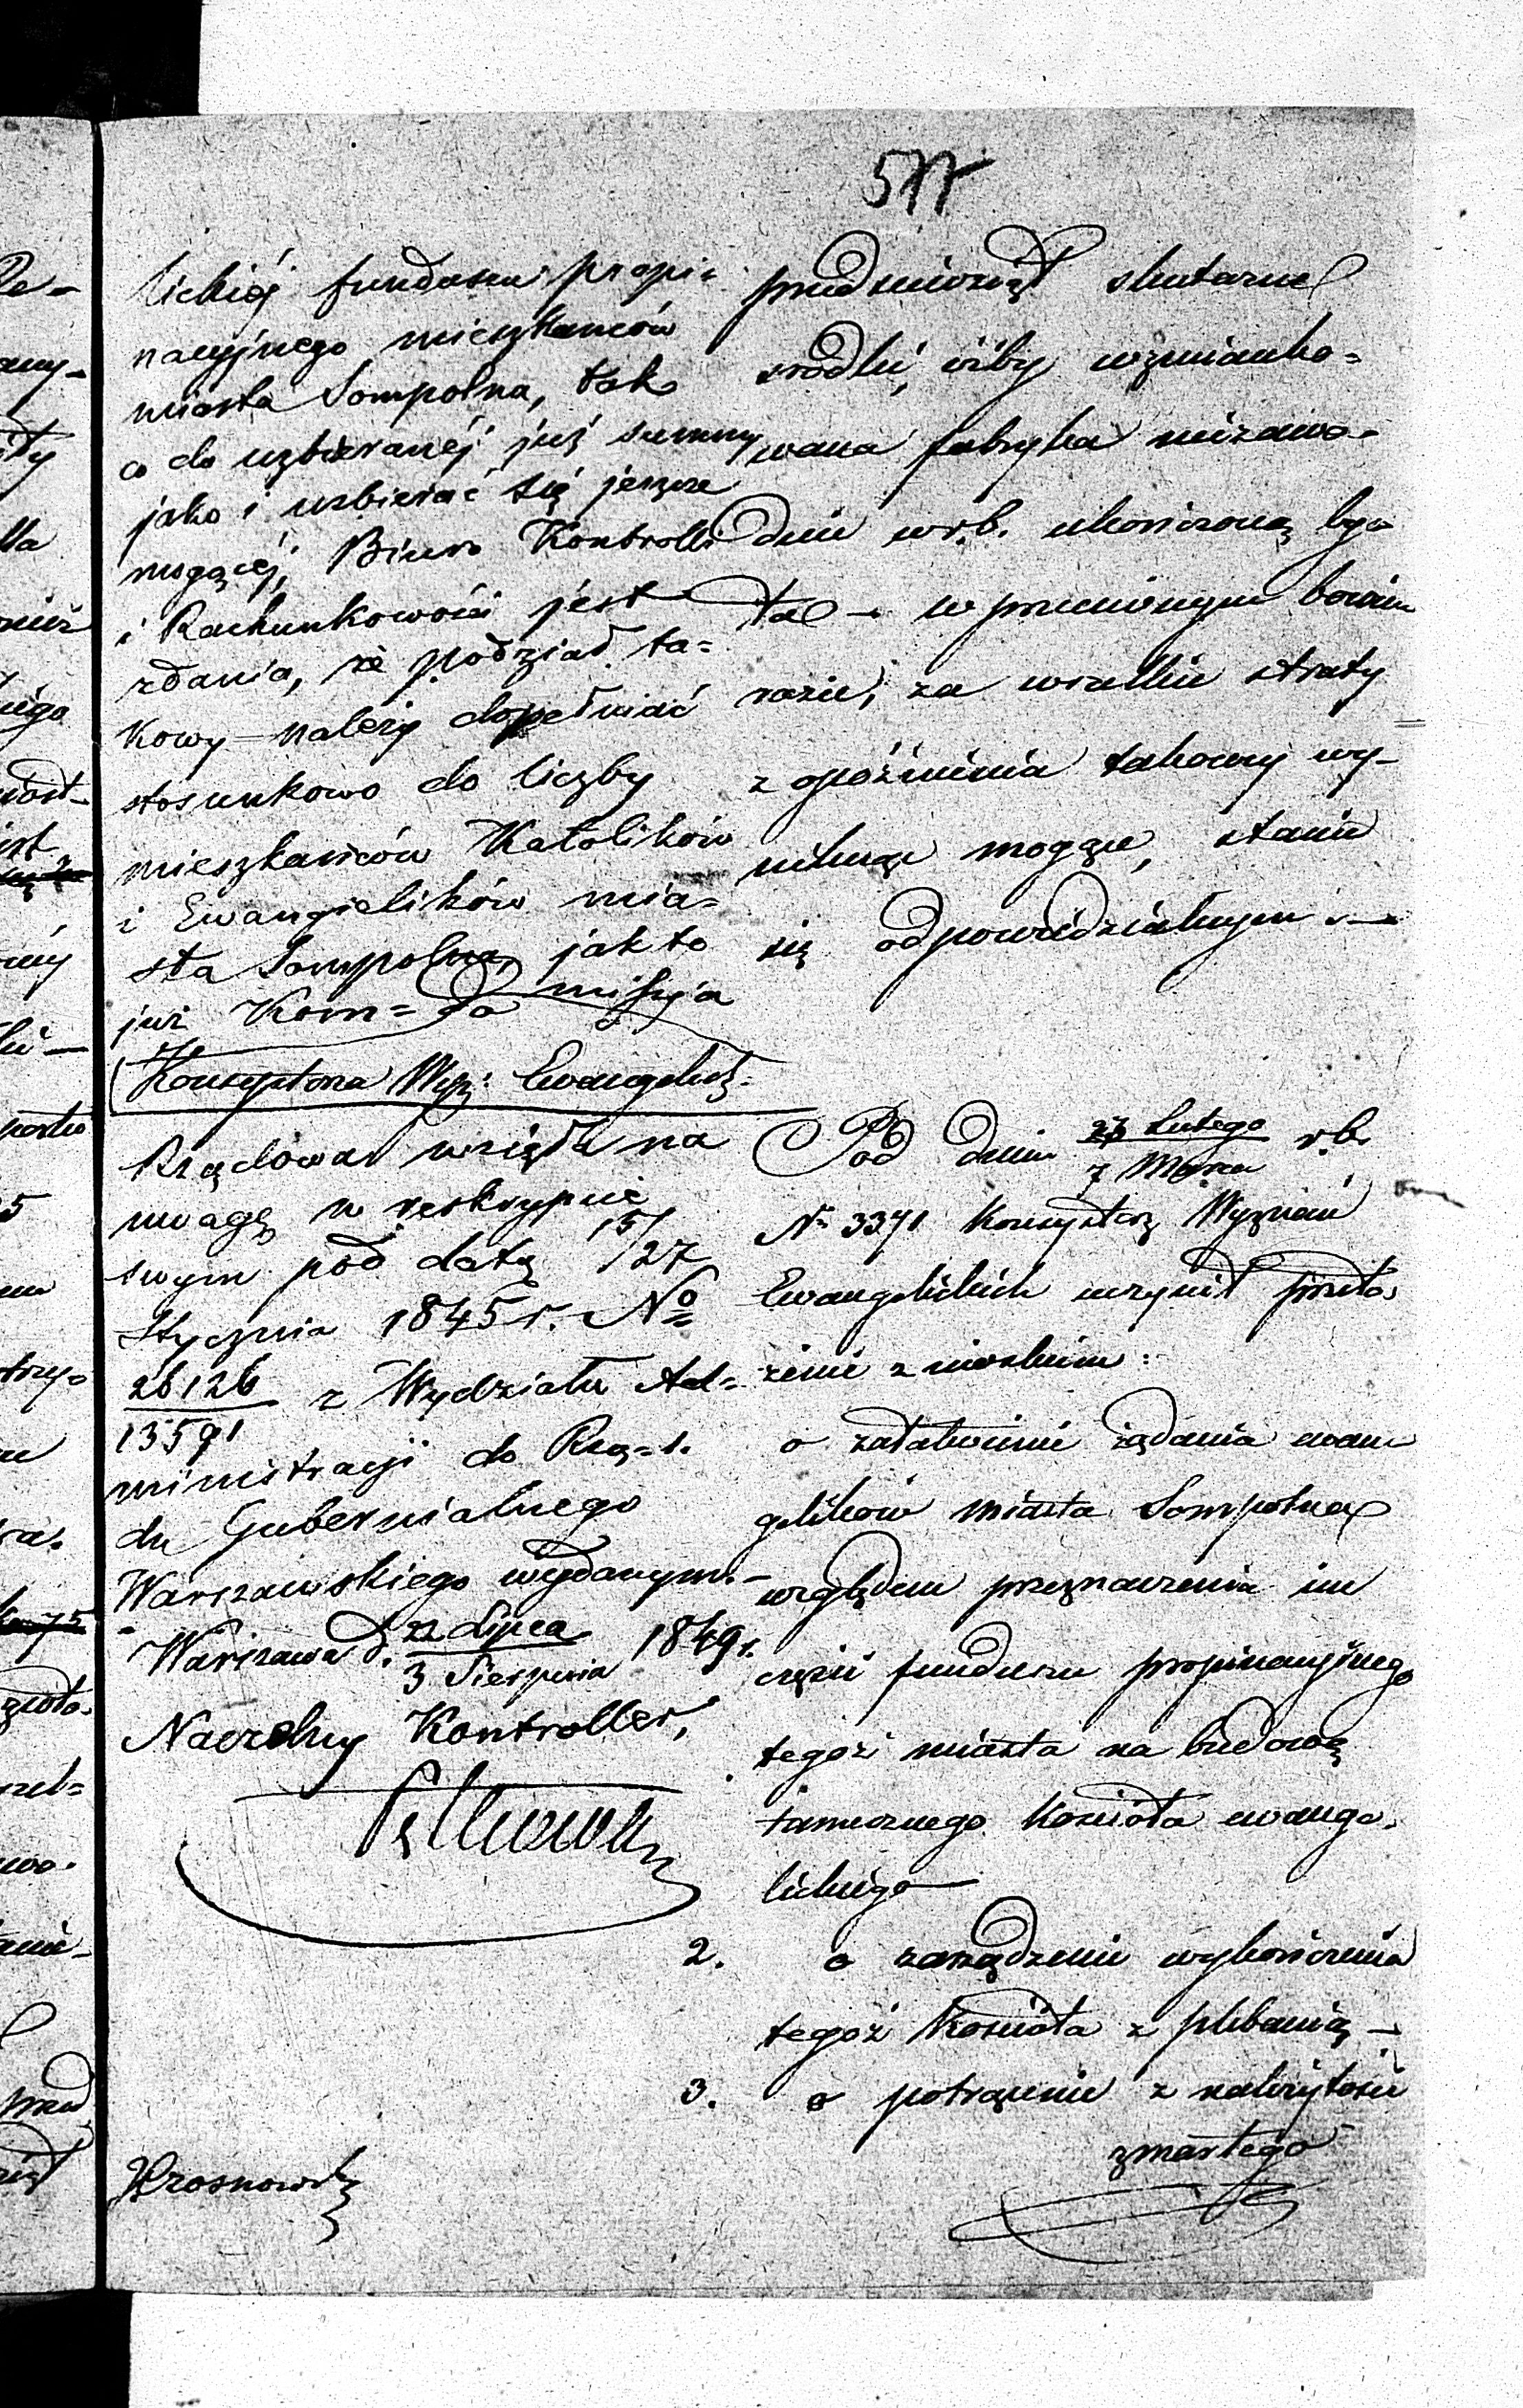 577
lickiéj funduszu propi=
nacyjnego mieszkańców
miasta Sompolna, tak
co do uzbieranéj już summy
jako i uzbierać się jeszcze
mogącéj, Biuro Kontrolli
i Rachunkowości jest
zdania, że podział ta=
kowy należy dopełniać
stosunkowo do liczby
mieszkańców Katolików
i Ewangielików mia=
sta Sompolna, jak to
już Kom= missyja
Do
Konsystorza Wyz: Ewangelick:
Rządowa wzięła na
uwagę w reskrypcie
swym pod datą 15/27
Stycznia 1845 r. No
26126/13591 z Wydziału Ad=
ministracji do Rzą=
du Gubernialnego
Warszawskiego wydanym.
Warszawa d. 22 Lipca/3 Sierpnia 1849 r.
Naczelny Kontroller,
Krosnowski
przedsięwziął skuteczne
środki, iżby wzmianko=
wana fabryka niezawo=
dnie w r.b. ukończoną by=
ła — w przeciwnym bowiem
razie, za wszelkie straty
z opóźnienia takowéj wy=
niknąć mogące, stanie
się odpowiedzialnym. —
Pod dniem 23 Lutego/7 Marca r.b.
No 3371 Konsystorz Wyznań
Ewangelickich uczynił przeło=
żenie z wnioskiem:
o załatwienie żądania ewan
gelików miasta Sompolna
względem przeznaczenia im
części funduszu propinacyjnego
tegoż miasta na budowę
tamecznego Kościoła ewange=
lickiego —
2. o zarządzenie wykończenia
tegoż Kościoła z plebanią —
3. o potrącenie z należytości
zmarłego